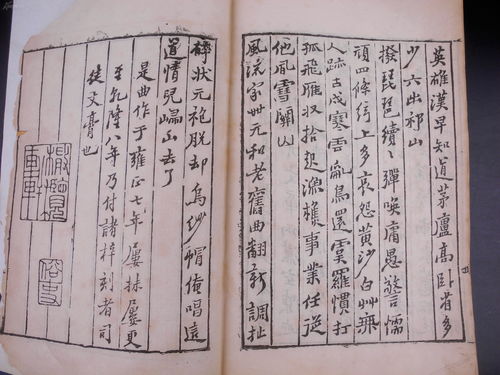 英雄漢早知道茅廬高卧省多
少六出祁山
撥琵琶續〻彈喚庸愚警懦
頑四條絃上多哀怨黃沙白艸無
人跡古戍寒雲亂鳥還虞羅慣打
孤飛雁収拾起漁樵事業任從
他風雪關山
風流家世元和老舊曲翻新調扯
碎狀元袍脫却烏紗帽俺唱這
道情兒歸山去了
是曲作于雍正七年屢抹屢更
至乾隆八年乃付諸梓刻者司
徒文膏也
俗吏